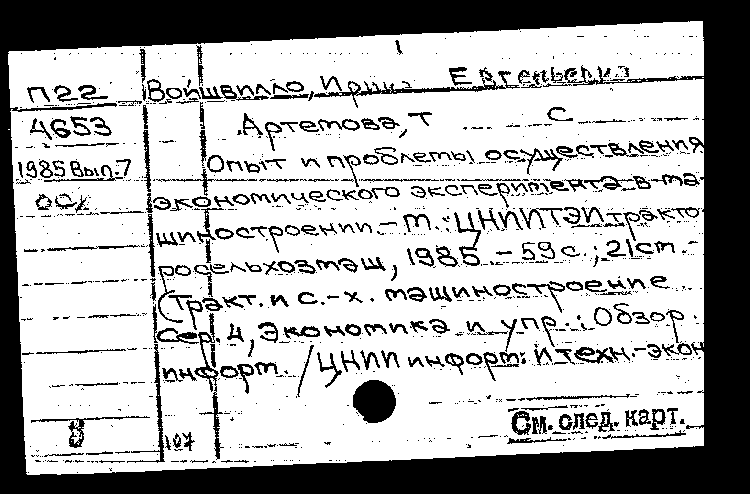 П22 Войшвилло, Ирина Евгеньевна
4653 Артемова, Т С
1985 Вып. 7 Опыт и проблемы осуществления
экономического эксперимента в ма-
шиностроении. - М.: ЦНИИТЭИ тракто-
росельхозмаш, 1985. - 59 с.; 21 см. -
(Тракт. и с.-х. машиностроение
Сер. 4, Экономика и упр.: Обзор.
информ. / ЦНИИ информ. и техн.-экон
8 107 См. след. карт.